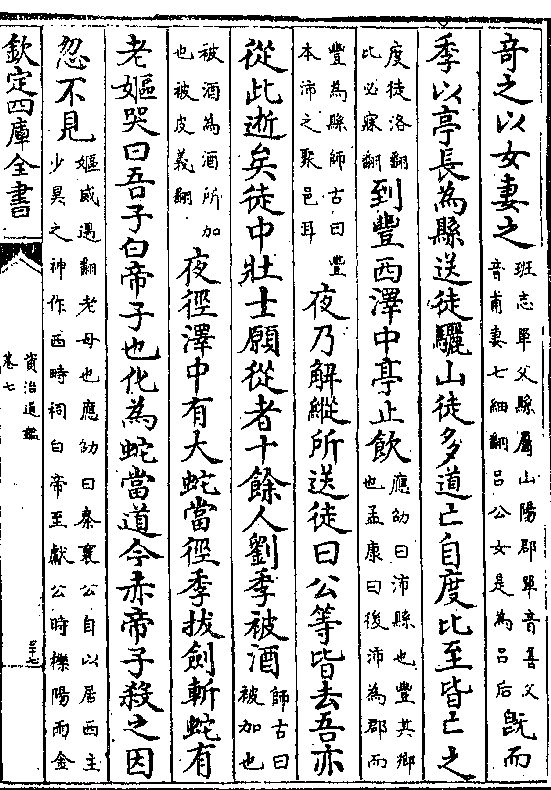 奇之以女妻之班志單父縣屬山陽郡單音善父
音甫妻七細翻呂公女是為呂后既而
季以亭長為縣送徒驪山徒多道亡自度比至皆亡之
度徒洛翻
比必寐翻到豐西澤中亭止飲應劭曰沛縣也豐其鄉
也孟康曰後沛為郡而
豐為縣師古曰豐
本沛之聚邑耳夜乃解縱所送徒曰公等皆去吾亦
從此逝矣徒中壯士願從者十餘人劉季被酒師古曰
被加也
被酒為酒所加
也被皮義翻夜徑澤中有大蛇當徑季拔劍斬蛇有
老嫗哭曰吾子白帝子也化為蛇當道今赤帝子殺之因
忽不見嫗威遇翻老母也應劭曰秦襄公自以居西主
少昊之神作西時祠白帝至獻公時櫟陽雨金
欽定四庫全書
資治通鑑
卷七
三十七